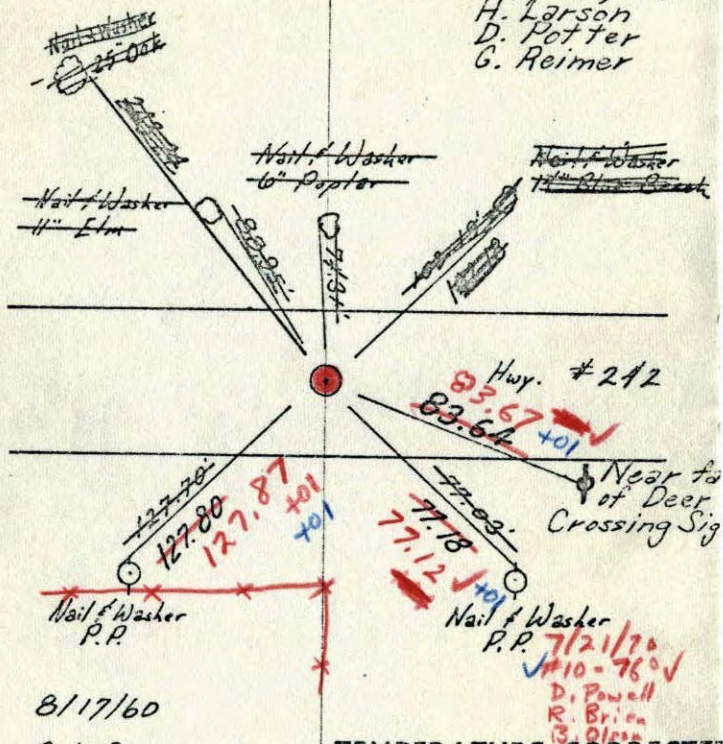 H. Larson
D. Potter
G. Reimer
Nail & Washer
25" Oak
Nail & Washer
6" Poplar
Nail & Washer
Nail & Washer
11" Elm
80.95'
Hwy. #242
83.67 ✓
83.64
+01
Near fa
of Deer
Crossing Sig
127.70'
127.80
127.87
+01
+01
77.03'
77.18
77.12 ✓
+01
Nail & Washer
P.P.
Nail & Washer
P.P.
7/21/70
✓#10 - 76° ✓
D. Powell
R. Brien
B. Olson
8/17/60